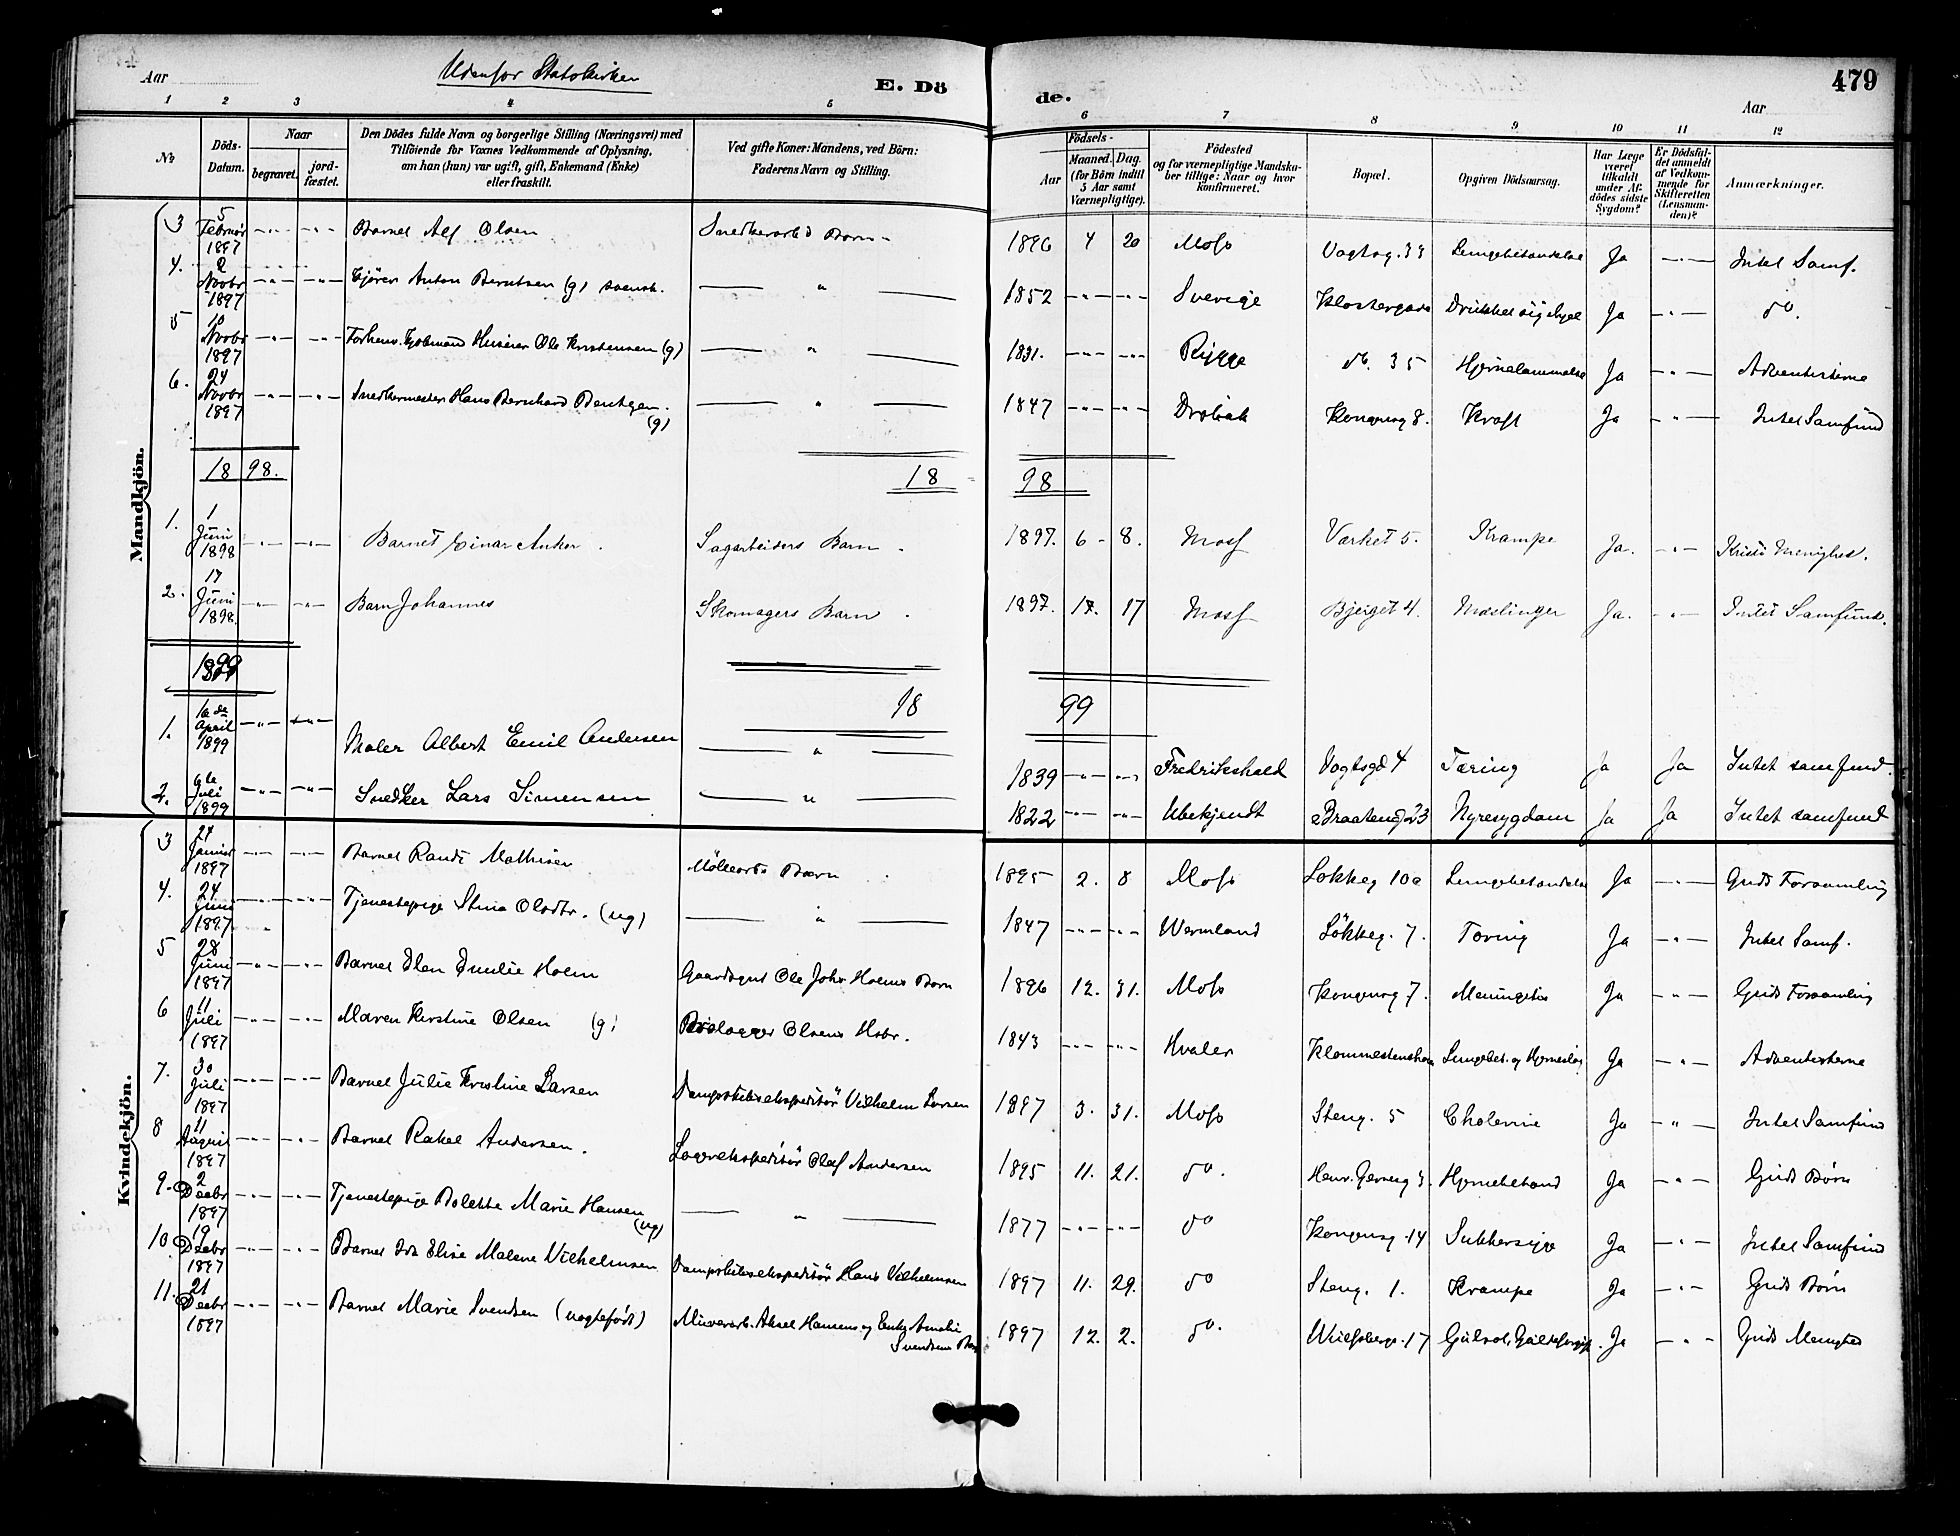 Aar
Udenfor Statskirken
E. Döde.
479
Aar
1 2 3 4 5 6 7 8 9 10 11 12
№
Döds-Datum.
Naar
begravet.
jord-fæstet.
Den Dödes fulde Navn og borgerlige Stilling (Næringsvei) med
Tilföiende for Voxnes Vedkommende af Oplysning,
om han (hun) var ugift, gift, Enkemand (Enke)
eller fraskilt.
Ved gifte Koner: Mandens, ved Börn:
Faderens Navn og Stilling.
Födsels-
Aar
Maaned. Dag.
(for Börn indtil
5 Aar samt
Værnepligtige).
Födested
og for værnepligtige Mandska-
ber tillige: Naar og hvor
konfirmeret.
Bopæl.
Opgiven Dödsaarsag.
Har Læge
været
tilkaldt
under Af-
dödes sidste
Sygdom?
Er Dödsfal-
det anmeldt
af Vedkom-
mende for
Skifteretten
(Lensman-
den)?
Anmærkninger.
Mandkjön.
3 5 Februar 1897 Barnet Alf Olsen Snedkerarb's Barn 1896 4 20 Moss Vogtsg. 33 Lungebetændelse Ja Intet Samf.
4. 2 Novbr 1897 Anton Berntsen (g) svensk 1852 Sverige Klostergade Ja do.
5 10 Novbr 1897 Forhenv. Huseier Ole Kristensen (g) 1831. Rygge do. 35 Hjernelammelse Ja Adventisterne
6. 24 Novbr 1897 Snedkermester Hans Bernhard Bentzen (g) 1847 Drøbak Kongensg 8. Kræft Ja Intet Samfund
1898.
1898
1. 1 Juni 1898 Barnet Einar Anker. Sagarbeiders Barn. 1897. 6 8. Moss Værket 5. Krampe Ja. Kristi Menighed.
2. 17 Juni 1898. Barn Johannes Skomagers Barn. 1897. 17. 17 Moss Bjerget 4. Mæslinger Ja. Intet Samfund.
1899
1899
1. 16de April 1899 Maler Albert Emil Andersen 1839 Fredrikshald Vogtsgd 4 Tæring Ja Ja Intet samfund.
2. 9de Juli 1899 Snedker Lars Simensen 1822 Ubekjendt Braatengd 23 Nyresygdom Ja Ja Intet samfund
Kvindekjön.
3 27 Januar 1897 Barnet Randi Mathisen Möllearb's Barn 1895 2. 8 Moss Løkkeg 10a Lungebetændelse Ja Guds Forsamling
4. 24 Juni 1897 Tjenestepige Stina Olsdtr. (ug) 1847 Wermland Løkkeg. 7. Tæring Ja Intet Samf.
5 28 Juni 1897 Barnet Elen Emilie Holm Gaardsgut Ole Johs Holms Barn 1896 12. 31. Moss Kongensg 7. Meningitis Ja Guds Forsamling
6 11 Juli 1897 Maren Kirstine Olsen (g) Olsens Hstr. 1843 Hvaler Lungebet. og Ja Adventisterne
7. 30 Juli 1897 Barnet Julie Kristine Larsen Dampskibsekspeditör Vilhelm Larsen 1897 3. 31. Moss Steng. 5 Cholerine Ja Intet Samfund
8 11 August 1897 Barnet Rakel Andersen. Olaf Andersen 1895 11. 21. do. Henr. Gernersg 3. Hjernebetænd Ja Guds Børn
9. 2 Decbr 1897 Tjenestepige Bolette Marie Hansen (ug) 1877 do Kongensg 14 Sukkersyge Ja Intet Samfund
10 19 Decbr 1897 Barnet Ida Elise Malene Vilhelmsen Dampskibsekspeditör Hans Vilhelmsen 1897 11. 29. do Steng. 1. Krampe Ja Guds Børn
11. 21 Decbr 1897 Barnet Marie Svendsen (uægtefødt) Murerarb. Aksel Hansens og Enke Amalie Svendsens Barn 1897 12. 2. do. Wulfsbergs. 17 Ja Guds Menighed